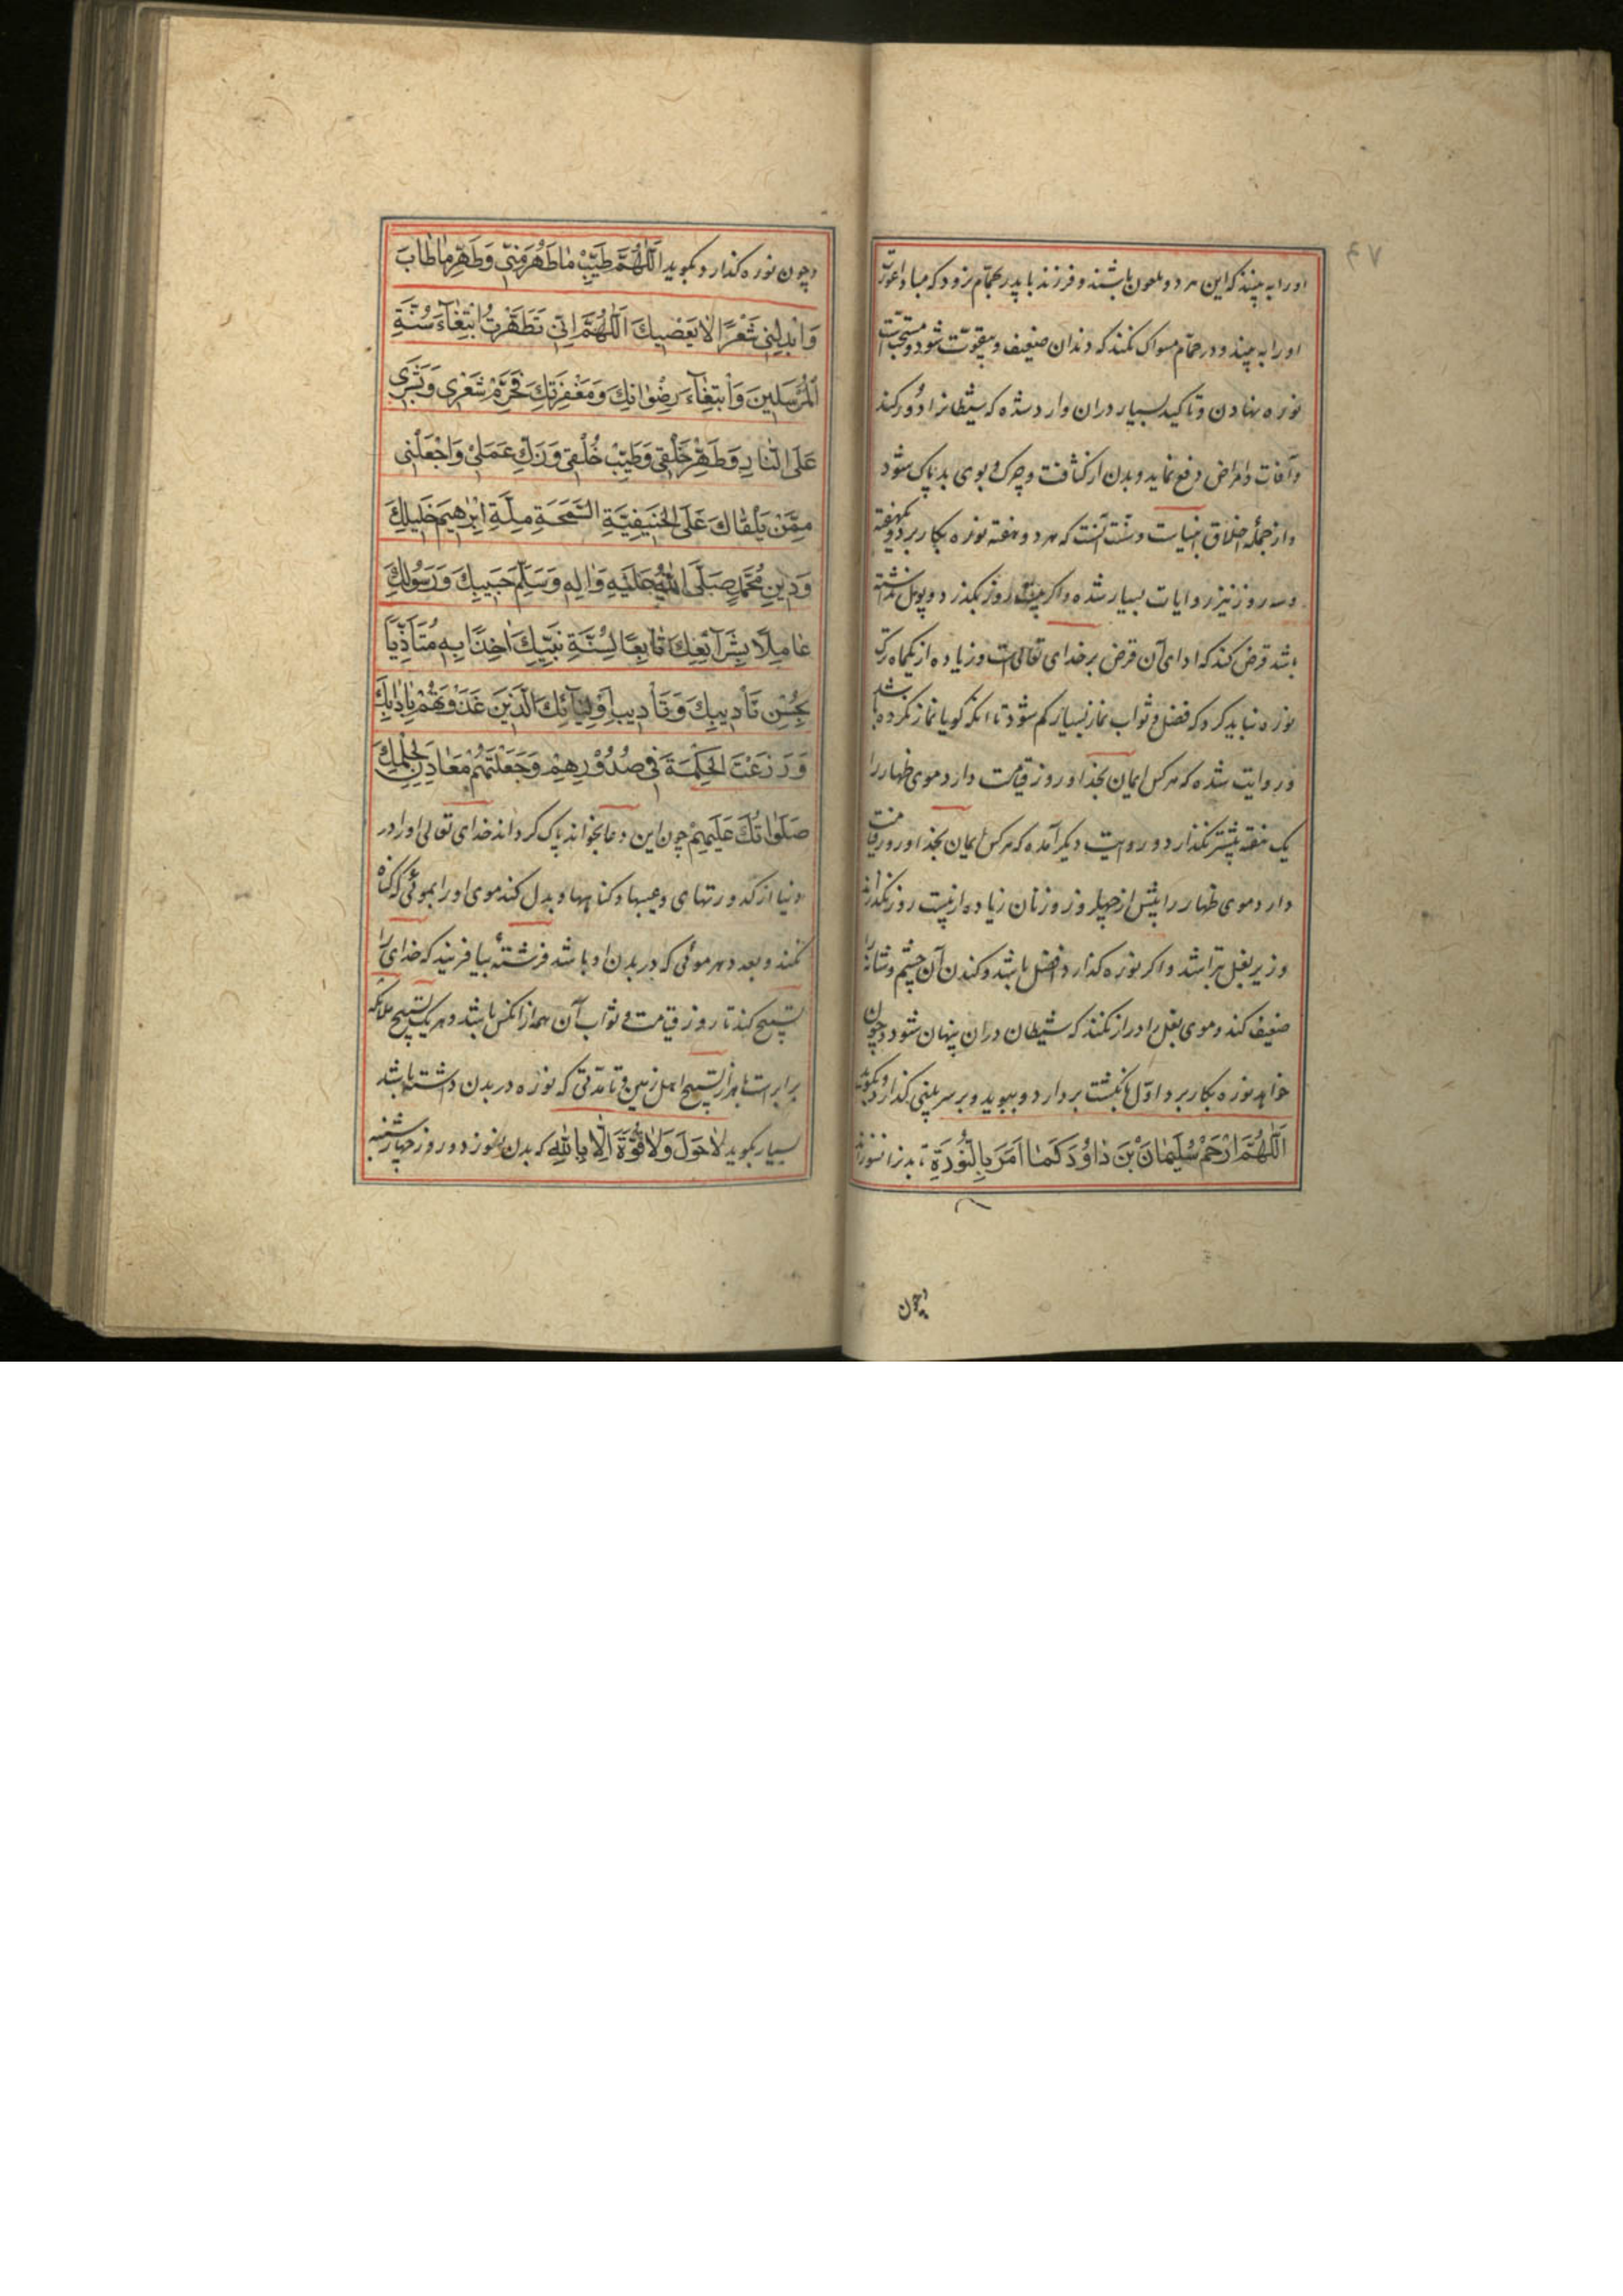 ۷۴
او را به بیند که این هر دو ملعون باشند و فرزند با پدر بحمام نرود که مبادا عورت
او را به بیند و در حمام مسواک نکند که دندان ضعیف و بیقوت شود و مستحب است
نوره نهادن و تاکید بسیار دران وارد شده که شیطانرا دور کند
و آفات و امراض دفع نماید و بدن از کثافت و چرک و بوی بد پاک شود
و از جمله اخلاق انبیاست و سنت آنست که هر دو هفته نوره بکار برد و یکهفته
و سه روز نیز روایات بسیار شده و اگر بیست روز بگذرد و پول نداشته
باشد قرض کند که ادای آن قرض بر خدای تعالی است و زیاده از یکماه ترک
نوره نباید کرد که فضل و ثواب نماز بسیار کم شود تا آنکه گویا نماز نکرده باشد
و روایت شده که هر کس ایمان بخدا و روز قیامت دارد موی ظهار را
یک هفته بیشتر نگذارد و روایت دیگر آمده که هر کس ایمان بخدا و روز قیامت
دارد موی ظهار را بیش از چهل روز و زنان زیاده از بیست روز نگذارند
و زیر بغل تراشد و اگر نوره گذارد افضل باشد و کندن آن چشم و شانه را
ضعیف کند و موی بغل را دراز نکند که شیطان دران پنهان شود و چون
خواهد نوره بکار برد اول بانگشت بردارد و ببوید و بر سر بینی گذارد و بگوید
اَللّٰهُمَّ ارْحَمْ سُلَیْمٰانَ بْنَ دٰاوُدَ کَمٰا اَمَرَ بِالنُّورَةِ تا بدنرا نسوزاند
و چون
و چون نوره گذارد بگوید اَللّٰهُمَّ طَیِّبْ مٰا طَهُرَ مِنّی وَ طَهِّرْ مٰا طٰابَ
وَ اَبْدِلْنِی شَعْرًا لاٰ یَعْصِیكَ اَللّٰهُمَّ اِنّی تَطَهَّرْتُ ابْتِغٰآءَ سُنَّةِ
الْمُرْسَلِینَ وَ ابْتِغٰآءَ رِضْوٰانِكَ وَ مَغْفِرَتِكَ فَحَرِّمْ شَعْرِی وَ بَشَرِی
عَلَی النّٰارِ وَ طَهِّرْ خَلْقِی وَ طَیِّبْ خُلْقِی وَ زَكِّ عَمَلِی وَ اجْعَلْنِی
مِمَّنْ یَلْقٰاكَ عَلَی الْحَنِیفِیَّةِ السَّمْحَةِ مِلَّةِ اِبْرٰهِیمَ خَلِیلِكَ
وَ دِینِ مُحَمَّدٍ صَلَّی اللّٰهُ عَلَیْهِ وَ اٰلِهِ وَ سَلَّمَ حَبِیبِكَ وَ رَسُولِكَ
عٰامِلًا بِشَرٰآئِعِكَ تٰابِعًا لِسُنَّةِ نَبِیِّكَ اٰخِذًا بِهِ مُتَاَدِّبًا
بِحُسْنِ تَأْدِیبِكَ وَ تَأْدِیبِ اَوْلِیٰآئِكَ الَّذِینَ غَذَوْتَهُمْ بِاَدَبِكَ
وَ زَرَعْتَ الْحِکْمَةَ فِی صُدُورِهِمْ وَ جَعَلْتَهُمْ مَعٰادِنَ لِعِلْمِكَ
صَلَوٰاتُكَ عَلَیْهِمْ چون این دعا بخواند پاک گرداند خدای تعالی او را در
دنیا از کدورتهای و عیبها و گناهها و بدل کند موی او را بموئی که گناه
نکند و بعدد هر موئی که در بدن او باشد فرشتهٔ بیافریند که خدای را
تسبیح کند تا روز قیامت و ثواب آن همه از انکس باشد و هر یک تسبیح ملائکه
برابر است با هزار تسبیح اهل زمین و تا مدتی که نوره در بدن داشته باشد
بسیار بگوید لاٰ حَوْلَ وَ لاٰ قُوَّةَ اِلاّٰ بِاللّٰهِ که بدن نسوزد و روز چهارشنبه